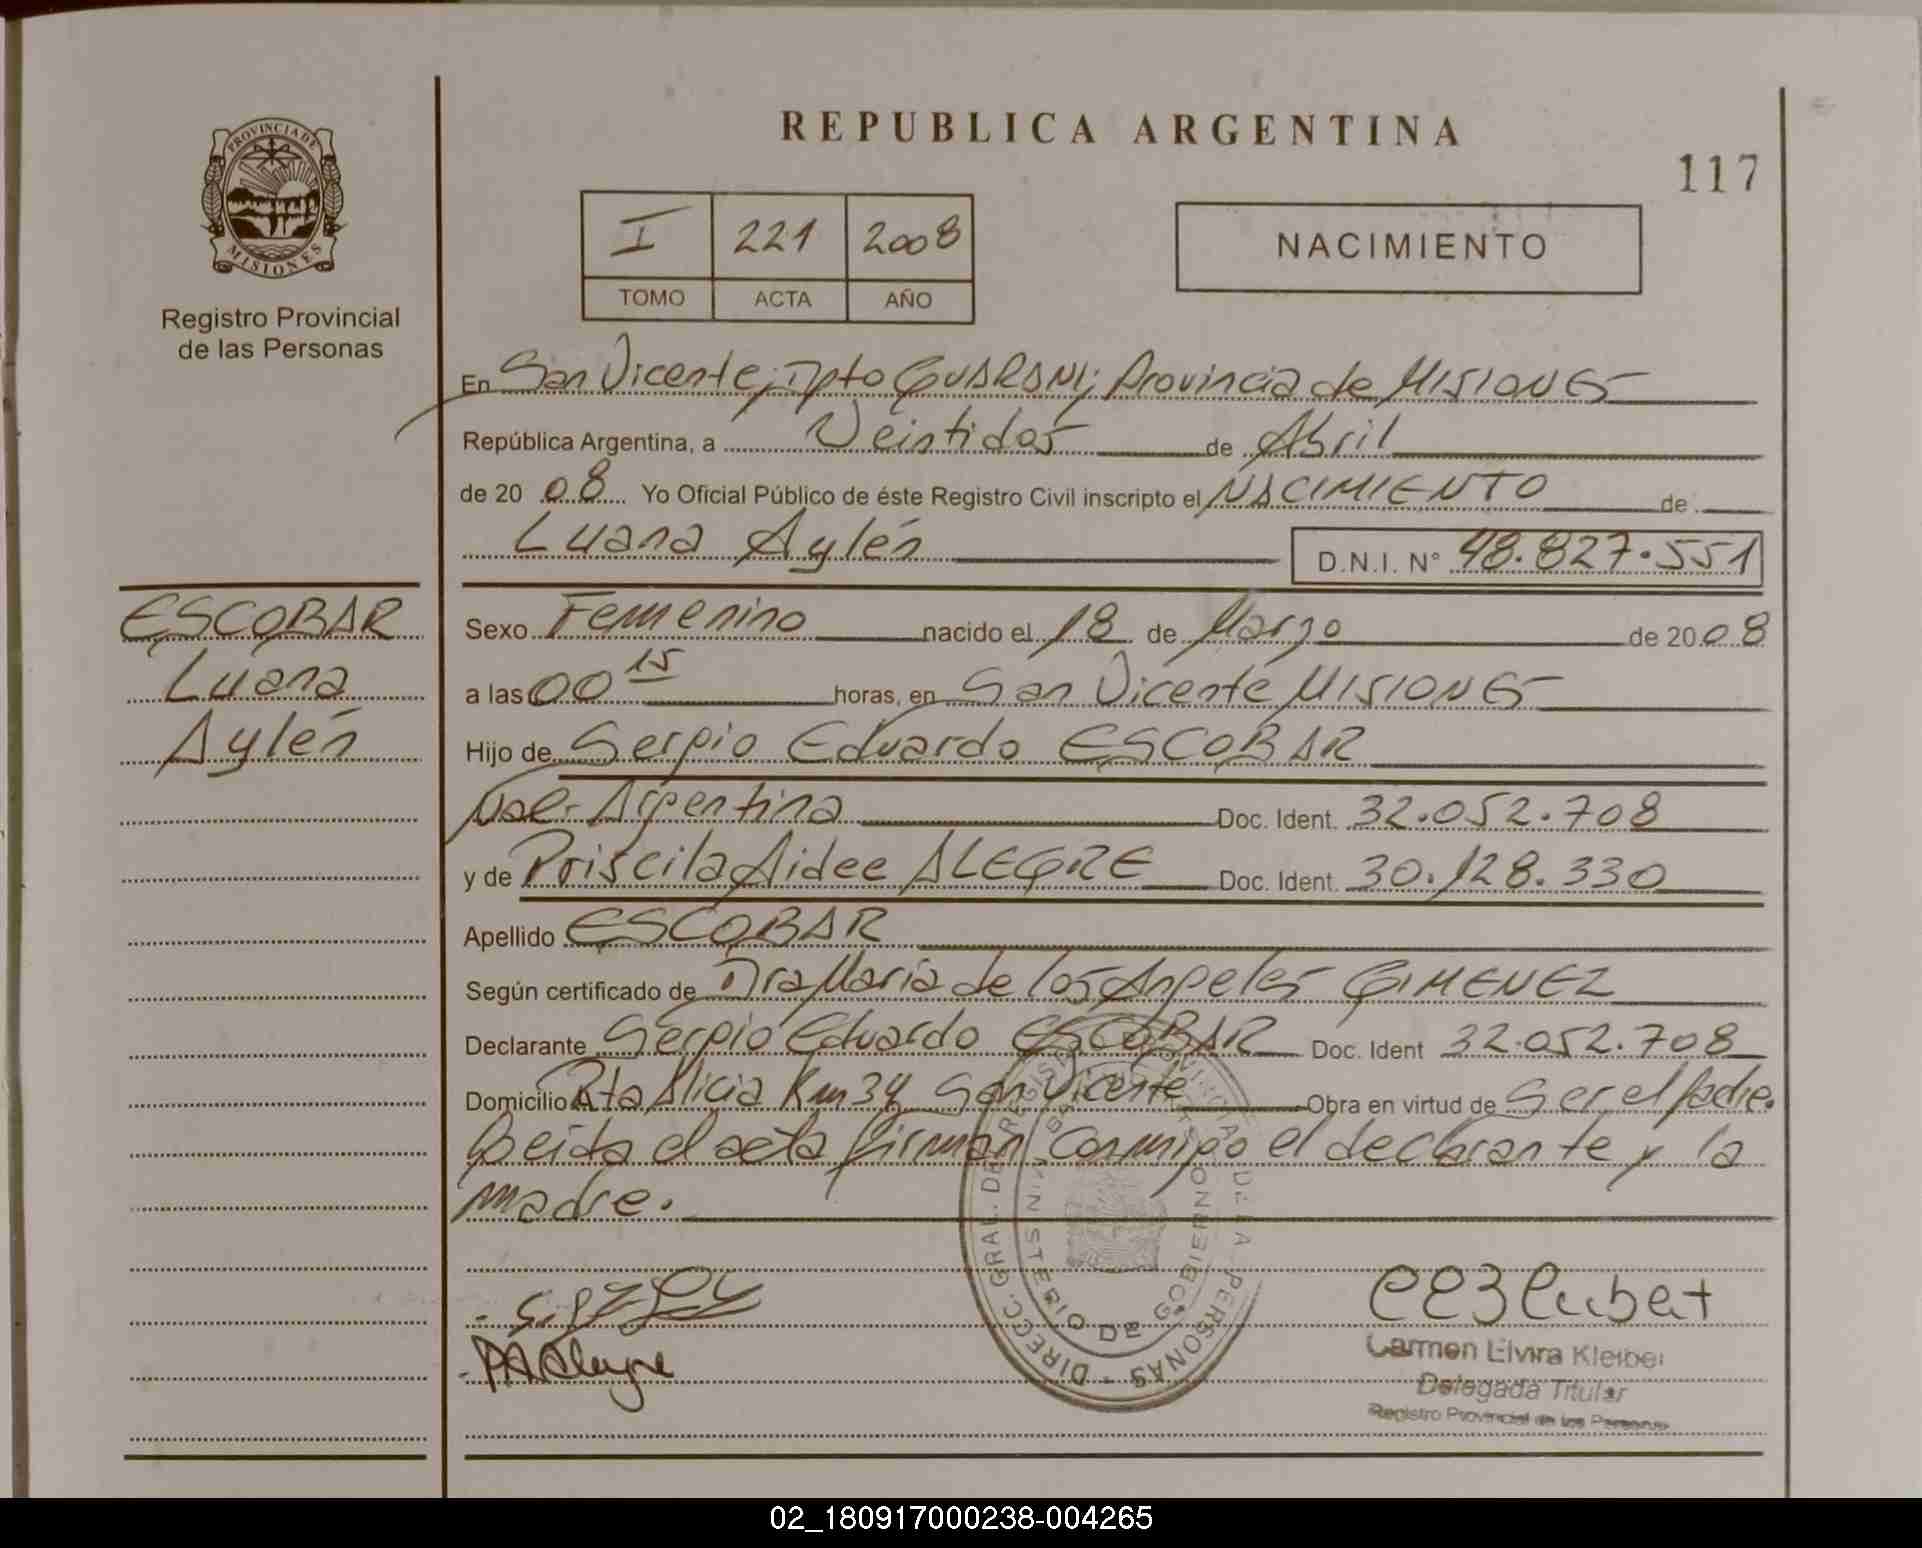 REPUBLICA ARGENTINA
117
PROVINCIA DE
MISIONES
Registro Provincial
de las Personas
I 221 2008
TOMO ACTA AÑO
NACIMIENTO
En San Vicente, Dpto GUARANI; Provincia de MISIONES
República Argentina, a Veintidos de Abril
de 2008 Yo Oficial Público de éste Registro Civil inscripto el NACIMIENTO de
Luana Aylén D.N.I. N° 48.827.551
ESCOBAR
Luana
Aylén
Sexo Femenino nacido el 18 de Marzo de 2008
a las 00 15 horas, en San Vicente MISIONES
Hijo de Sergio Eduardo ESCOBAR
Nac. Argentina Doc. Ident. 32.052.708
y de Priscila Aidee ALEGRE Doc. Ident. 30.128.330
Apellido ESCOBAR
Según certificado de Dra Maria de los Angeles GIMENEZ
Declarante Sergio Eduardo ESCOBAR Doc. Ident 32.052.708
Domicilio Pta Alicia Km 34 San Vicente Obra en virtud de Ser el padre.
Leida el acta firman conmigo el declarante y la
madre.
DIRECC. GRAL. DEL REGISTRO PROVINCIAL DE LA PERSONAS
MINISTERIO DE GOBIERNO
PAAlegre
Carmen Elvira Kleiber
Delegada Titular
Registro Provincial de las Personas
02_180917000238-004265